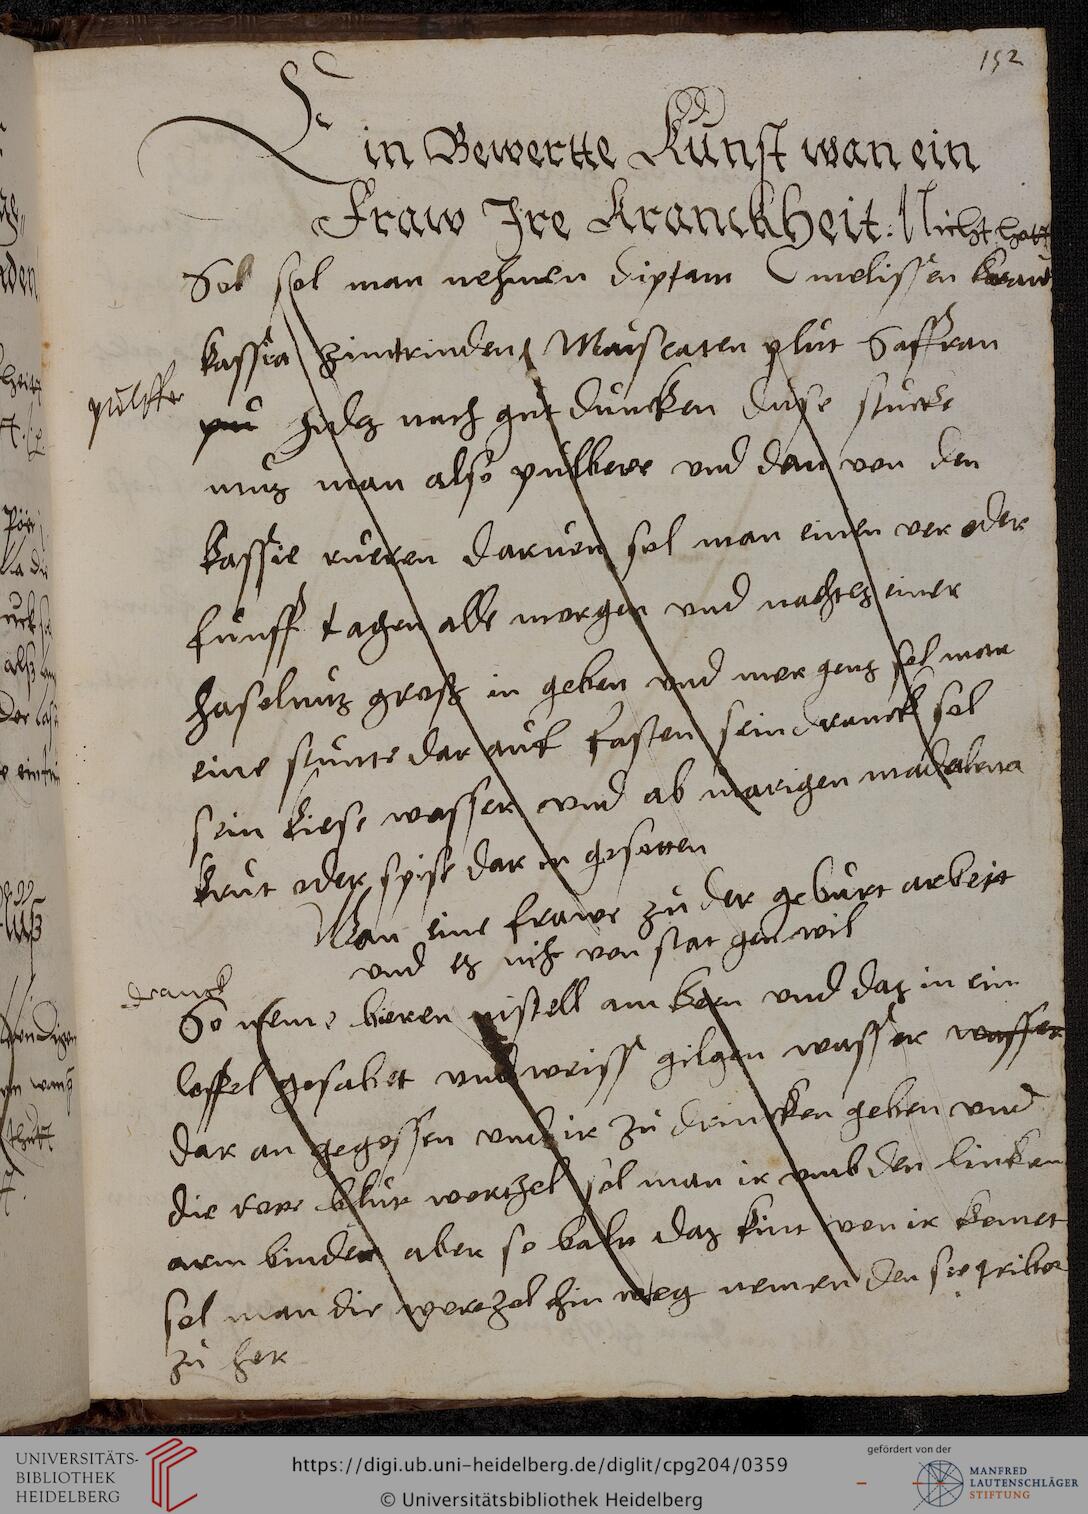 152
Ein Bewertte Kunst wan ein
Fraw Ire Kranckheit. Nicht hott
Sol sol man nehmen diptam melissen kraud
kassia zimtrinden Muscaten plüt Saffran
pülffer
jdes nach gut duncken dise stucke
mus man also pülbere vnd dan von den
kassie rueren daruen sol man einen ver oder
funff tagen alle morgen vnd nachtes einer
haselnus gross in geben vnd mor gens sol man
eine stunte dar auf fasten sein dranck sol
sein kiese wasser vnd ab marigen madalena
krut oder spise dar in gesotten
Wan eine frawe zu der geburt arbeit
vnd es nicht von stat gen wil
dranck
So neme beren mistell am bern vnd das in ein
loffel geschabet vnd weiss gilgen wasser wasser
dar an gegossen vnd ir zu drincken geben vnd
die rore blut wortzel sol man ir vmb den lincken
arm binden aber so balt das kint von ir kemet
sol man die wertzel hin weg nemen den sie
zu her
UNIVERSITÄTS-
BIBLIOTHEK
HEIDELBERG
https://digi.ub.uni-heidelberg.de/diglit/cpg204/0359
© Universitätsbibliothek Heidelberg
gefördert von der
MANFRED
LAUTENSCHLÄGER
STIFTUNG